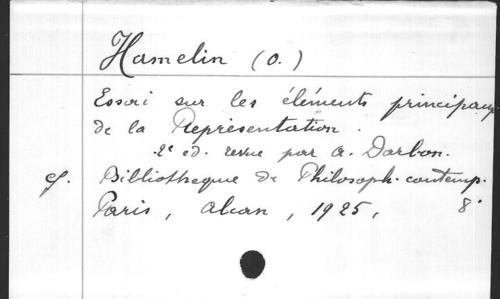 Hamelin (O.)
Essai sur les éléments principaux
de la Représentation.
2e éd. revue par A. Darbon.
cf. Bibliothèque de Philosoph. contemp.
Paris, Alcan, 1925, 8°